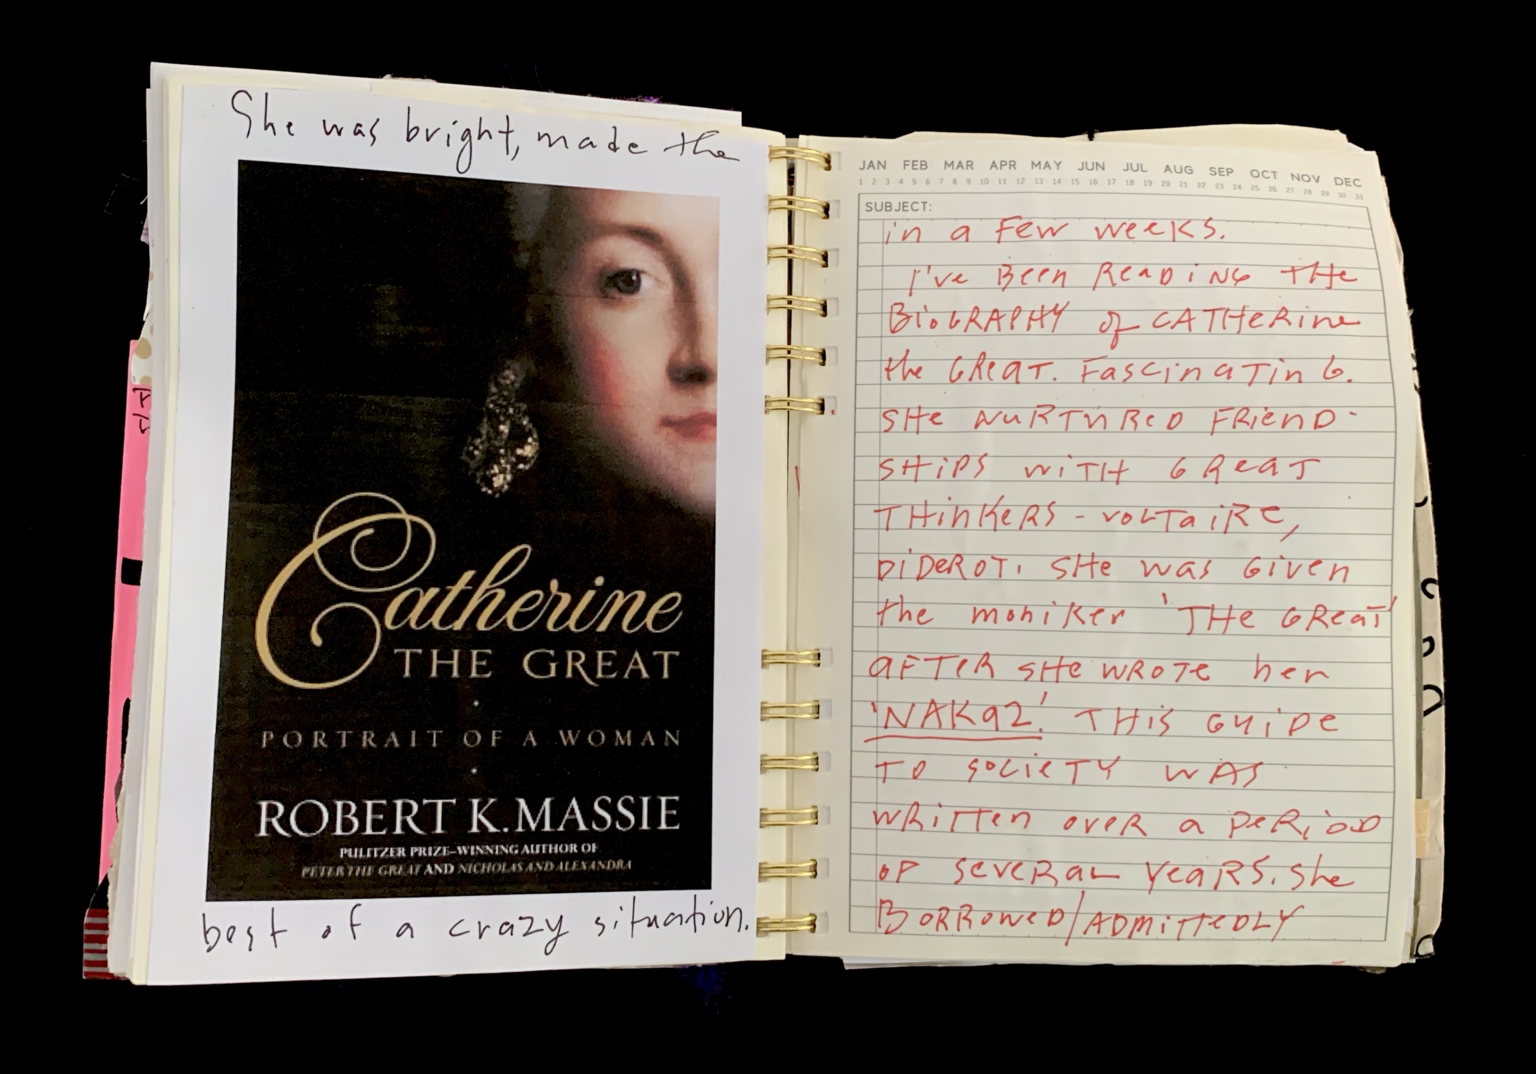 She was bright, made the
Catherine
THE GREAT
PORTRAIT OF A WOMAN
ROBERT K. MASSIE
PULITZER PRIZE–WINNING AUTHOR OF
PETER THE GREAT AND NICHOLAS AND ALEXANDRA
best of a crazy situation.
JAN FEB MAR APR MAY JUN JUL AUG SEP OCT NOV DEC
1 2 3 4 5 6 7 8 9 10 11 12 13 14 15 16 17 18 19 20 21 22 23 24 25 26 27 28 29 30 31
SUBJECT:
in a Few weeks.
I've Been Reading THe
BioGRAPHY of CATHerine
the GReaT. FascinaTinG.
SHe NuRTuReD FRienD-
SHiPS wiTH GReaT
THinKeRS - volTaiRe,
DiDeRoT. SHe was Given
the moniker 'THe GReaT'
aFTeR SHe WROTe her
'NAKaZ'. THiS GuiDe
To SocieTY WAS
WRiTTen oveR a PeRioD
oF SeveRaL YeARS. She
BoRRoweD/ADmiTTeDLY